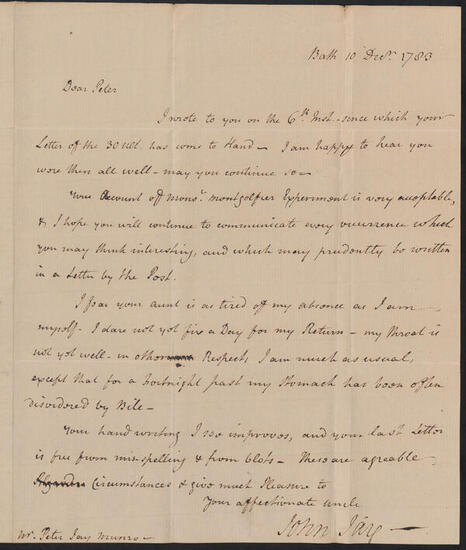 Bath 10 Decr. 1783
Dear Peter
I wrote to you on the 6th Inst. since which your
Letter of the 30 ult. has come to Hand – I am happy to hear you
were then all well – may you continue so –
Your Account of Monsr. Montgolfier Experiment is very acceptable,
& I hope you will continue to communicate every occurrence which
you may think interesting, and which may prudently be written
in a Letter by the Post.
I fear your aunt is as tired of my absence as I am
myself. I dare not yet fix a Day for my Return – my Throat is
not yet well – in other Respects, I am much as usual,
except that for a fortnight past my Stomach has been often
disordered by Bile –
Your hand writing I see improves, and your last Letter
is free from mis-spelling & from blots – These are agreeable
Circumstances & give much Pleasure to
Your affectionate uncle
John Jay –
Mr. Peter Jay Munro –